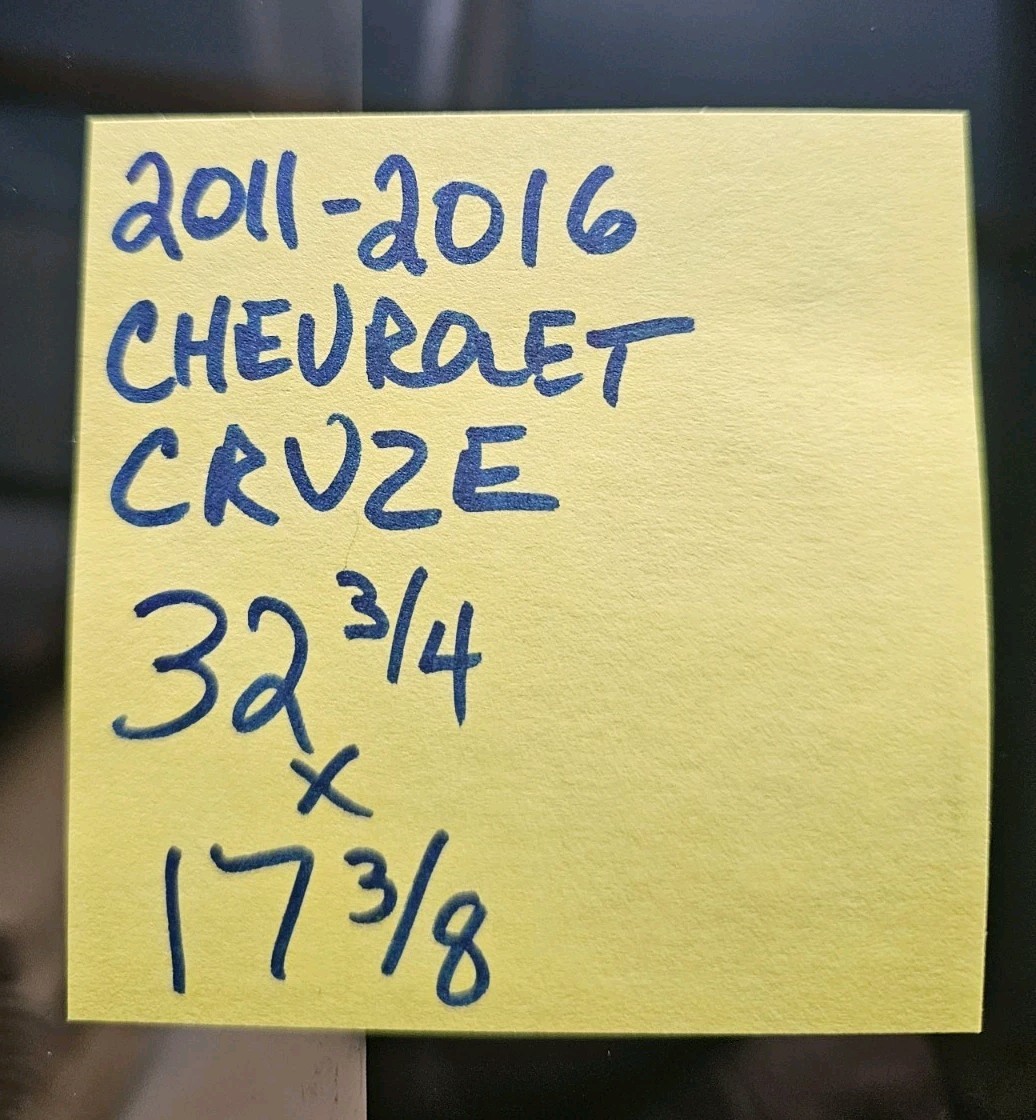 2011-2016
CHEVROLET
CRUZE
32 3/4
x
17 3/8